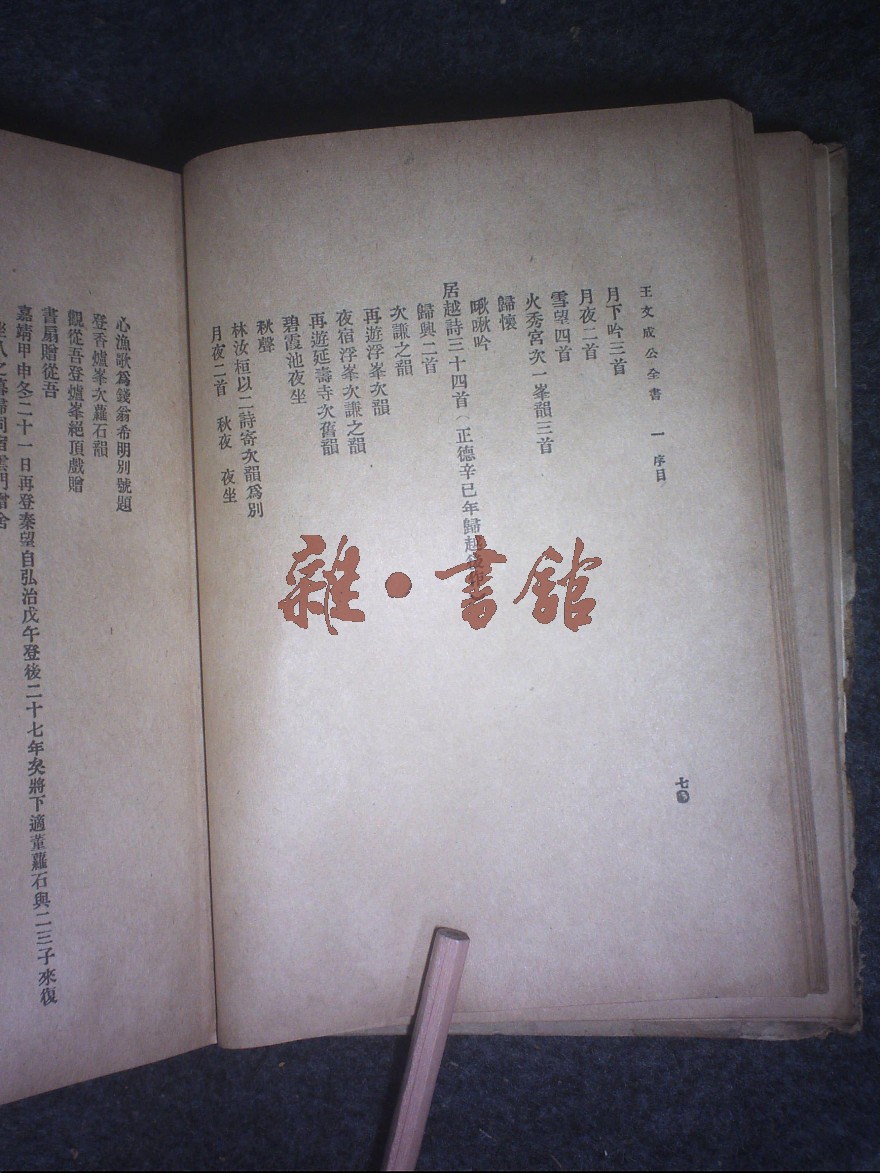 王文成公全書 一 序目
七〇
月下吟三首
月夜二首
雪望四首
火秀宮次一峯韻三首
歸懷
啾啾吟
居越詩三十四首 正德辛巳年歸越後
歸興二首
次謙之韻
再遊浮峯次韻
夜宿浮峯次謙之韻
再遊延壽寺次舊韻
碧霞池夜坐
秋聲
林汝桓以二詩寄次韻爲別
月夜二首 秋夜 夜坐
心漁歌爲錢翁希明別號題
登香爐峯次蘿石韻
觀從吾登爐峯絕頂戲贈
書扇贈從吾
嘉靖甲申冬二十一日再登秦望自弘治戊午登後二十七年矣將下適董蘿石與二三子來復
坐久之暮歸同宿雲門僧舍
雜·書館